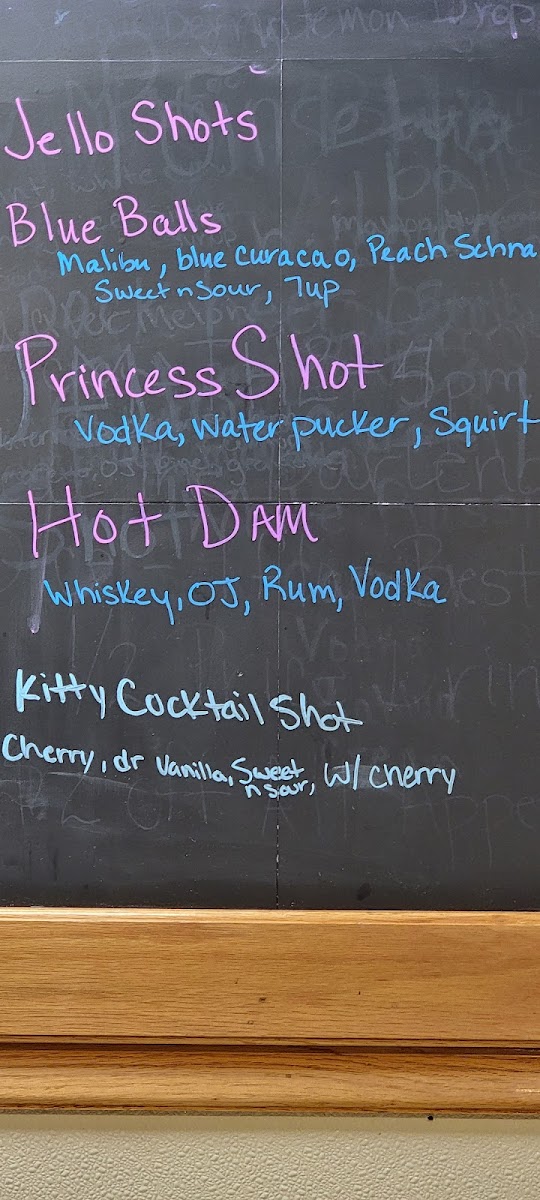 Lemon Drop
Jello Shots
Blue Balls
Malibu, blue curacao, Peach Schna
Sweet n Sour, 7up
Princess Shot
Vodka, Water pucker, Squirt
Hot DAM
Whiskey, OJ, Rum, Vodka
Kitty Cocktail Shot
Cherry, dr Vanilla, Sweet n sour, w/ cherry